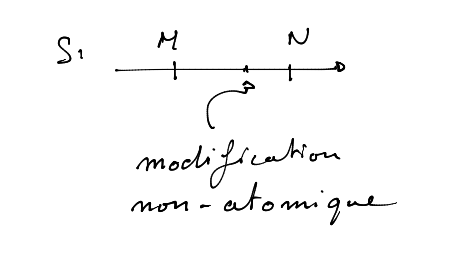 S1
M N
modification
non-atomique